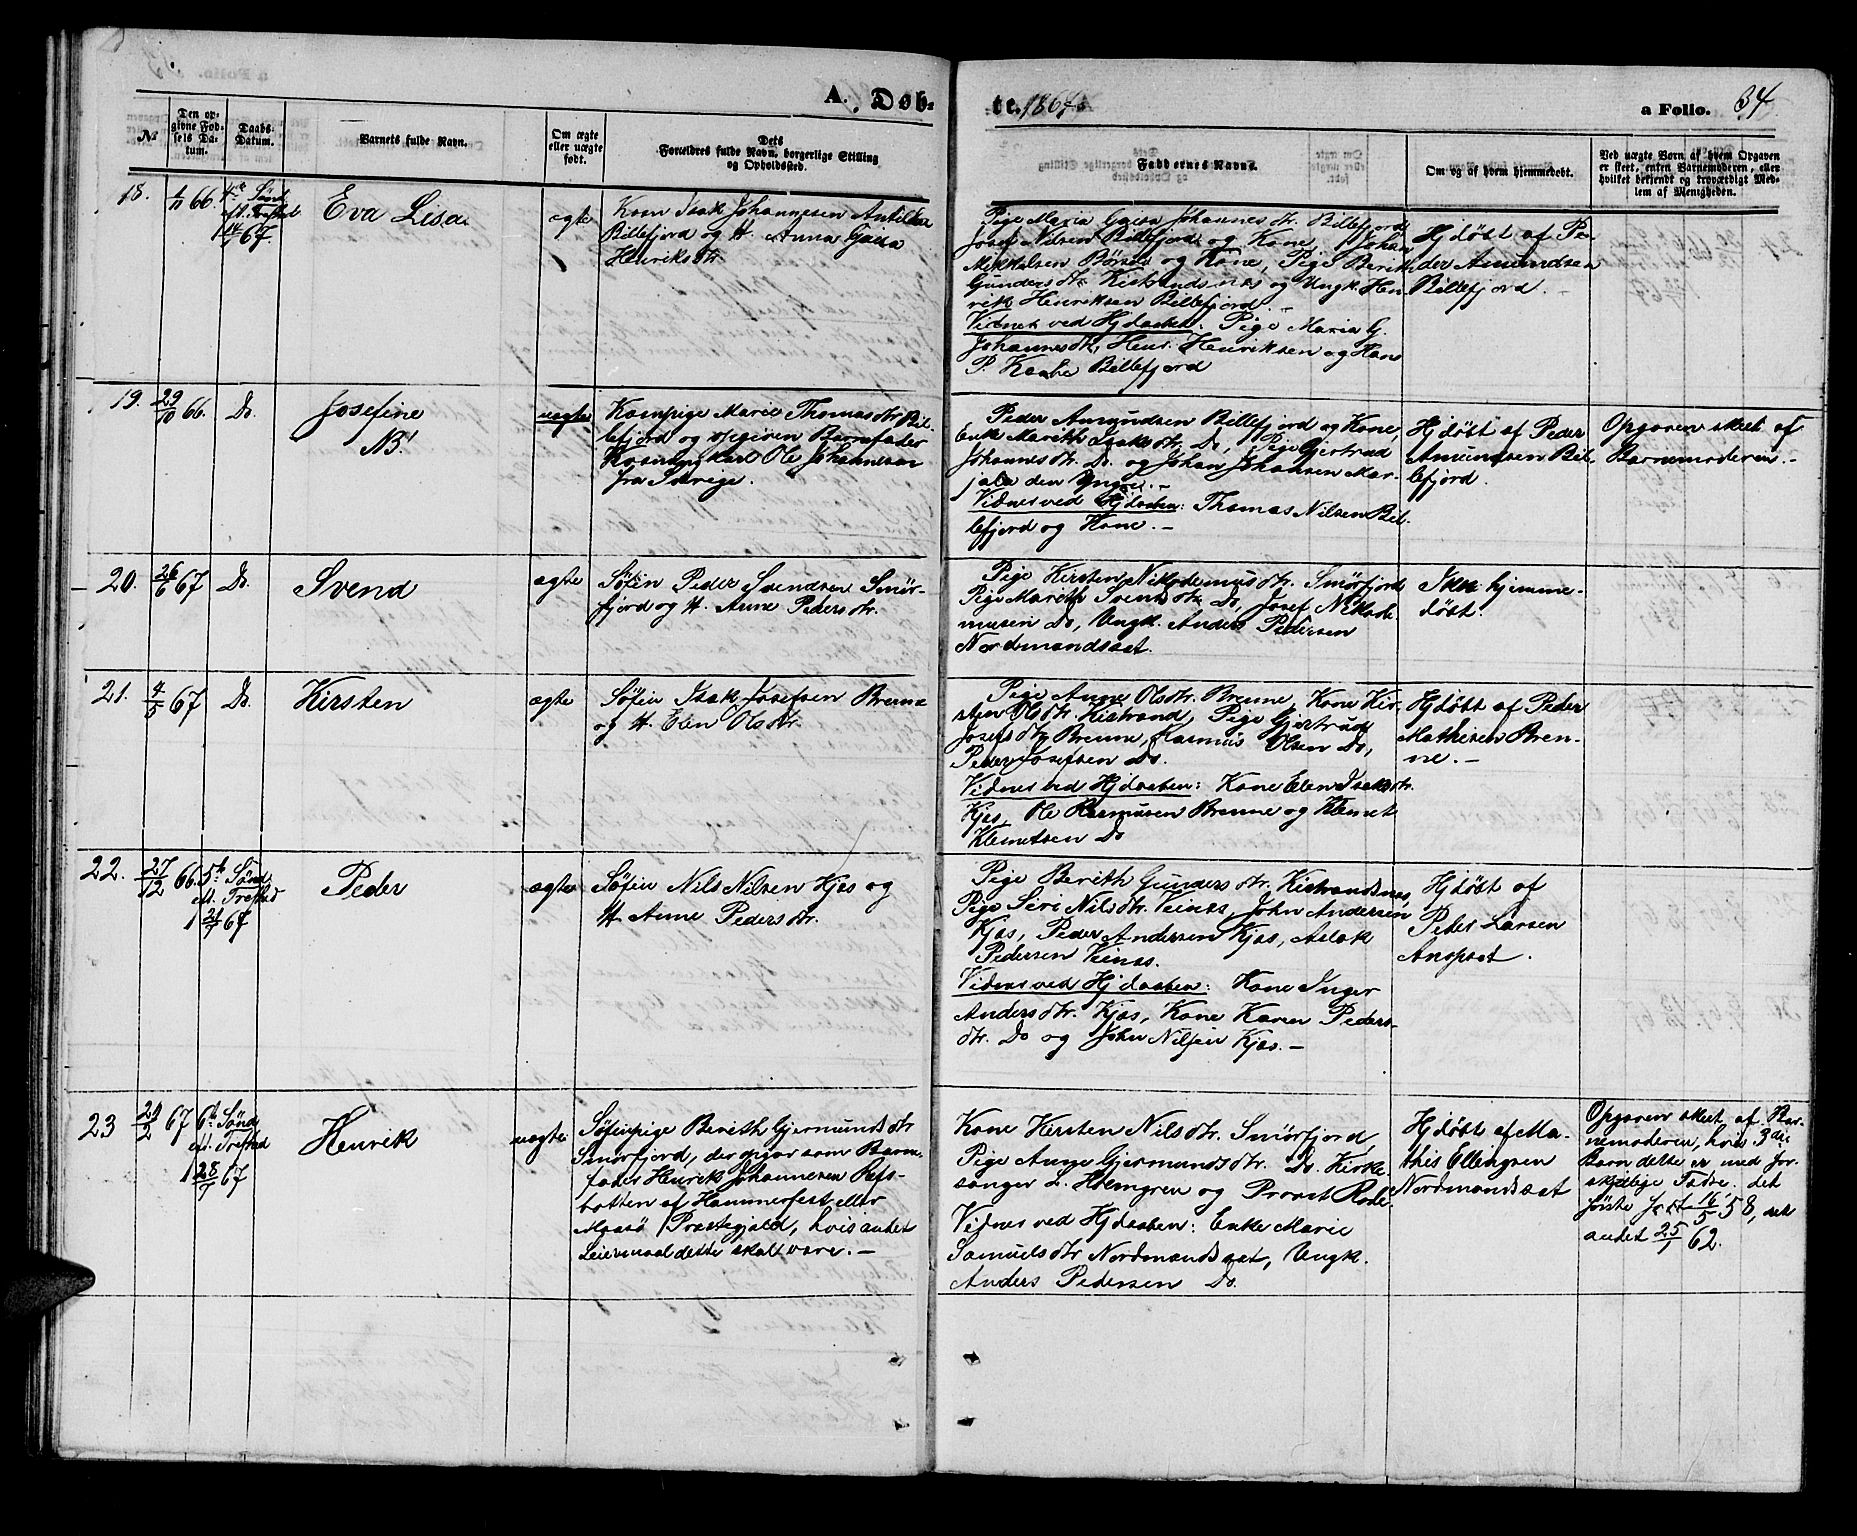 A. Døb-
te. 1867.
a Folio. 34
No.
Den op-
givne Fød-
sels Da-
tum.
Daabs-
Datum.
Barnets fulde Navn.
Om ægte
eller uægte
født.
Dets
Forældres fulde Navn, borgerlige Stilling
og Opholdssted.
Faddernes Navne.
Om og af hvem hjemmedøbt.
Ved uægte Børn af hvem Opgaven
er skeet, enten Barnemoderen, eller
hvilket bekjendt og troværdigt Med-
lem af Menigheden.
18.
1/11 66
4de Sønd.
eft. Trefold
14/7 67.
Eva Lisa
ægte
Kvæn Isak Johannesen Antilka
Billefjord og H. Anna Gaisa
Henriksdtr.
Pige Maria Gaisa Johannesdtr. Billefjord
Josef Nilsen Billefjord og Kone, Johan
Mikkelsen Børselv og Kone, Pige Berith
Gundersdtr. Kistrandsnæs og Ungk. Hen-
rik Henriksen Billefjord. –
Vidner ved Hjdaaben: Pige Maria G.
Johannesdtr, Henr. Henriksen og Hans
P. Kaahe Billefjord
Hjdøbt af Pe-
der Amundsen
Billefjord. –
19.
29/10 66.
Do.
Josefine
NB!
uægte
Kvænpige Marie Thomasdtr Bil-
lefjord og opgiven Barnefader
Kvænungkarl Ole Johannesen
fra Sverige.
Peder Amundsen Billefjord og Kone,
Enke Marith Isaksdtr. Do, Pige Gjertrud
Johannesdtr. Do. og Johan Johansen Mar-
jala den Yngre. –
Vidner ved Hjdaaben: Thomas Nilsen Bil-
lefjord og Kone. –
Hjdøbt af Peder
Amundsen Bil-
lefjord.
Opgaven skeet af
Barnemoderen. –
20.
26/6 67
Do.
Svend
ægte
Søfin Peder Svendsen Smør-
fjord og H. Anne Pedersdtr.
Pige Kirsten Nikodemusdtr. Smørfjord
Pige Marith Svendsdtr. Do, Josef Nikode-
musen Do, Ungk. Anders Pedersen
Nordmandsæt.
Ikke hjemme-
døbt.
21.
4/5 67
Do.
Kirsten
ægte
Søfin Isak Josefsen Brenne
og H. Elen Olsdtr.
Pige Anne Olsdtr. Brenne, Kone Kir-
sten Olsdtr. Kistrand, Pige Gjertrud
Josefsdtr Brenne, Rasmus Olsen Do,
Peder Josefsen Do.
Vidner ved Hjdaaben: Kone Elen Isaksdtr.
Kjæs, Ole Rasmusen Brenne og Klemet
Klemetsen Do
Hjdøbt af Peder
Mathisen Bren-
ne. –
22.
27/12 66.
5te Sønd.
eft. Trefold
21/7 67
Peder
ægte
Søfin Nils Nilsen Kjæs og
H. Anne Pedersdtr.
Pige Berith Gundersdtr. Kistrandsnæs,
Pige Siri Nilsdtr. Veinæs, John Andersen
Kjæs, Peder Andersen Kjæs, Aslak
Pedersen Veinæs.
Vidner ved Hjdaaben: Kone Inger
Andersdtr. Kjæs, Kone Karen Peders-
dtr. Do og John Nilsen Kjæs. –
Hjdøbt af
Peder Larsen
Anopset.
23
21/2 67
6te Sønd.
eft. Trefold
28/7 67
Henrik
uægte
Søfinpige Berith Gjermundsdtr
Smørfjord, der opgav som Barne-
fader Henrik Johannesen Refs-
botten af Hammerfest eller
Maasø Præstegjæld, hvis andet
Leiermaal dette skal være. –
Kone Kirsten Nilsdtr. Smørfjord
Pige Anne Gjermundsdtr. Do. Kirke-
sanger L. Holmgren og Provst Rode.
Vidner ved Hjdaaben: Enke Marie
Samuelsdtr Nordmandsæt, Ungk.
Anders Pedersen Do.
Hjdøbt af Ma-
this Ellingsen
Nordmandsæt
Opgaven skeet af Bar-
nemoderen, hvis 3die
Barn dette er med for-
skjellige Fædre. det
første født 16/5 58, det
andet 25/1 62.